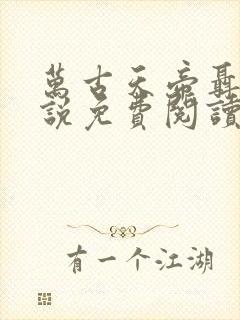 萬古天帝聶
說免費閱讀
有一个江湖